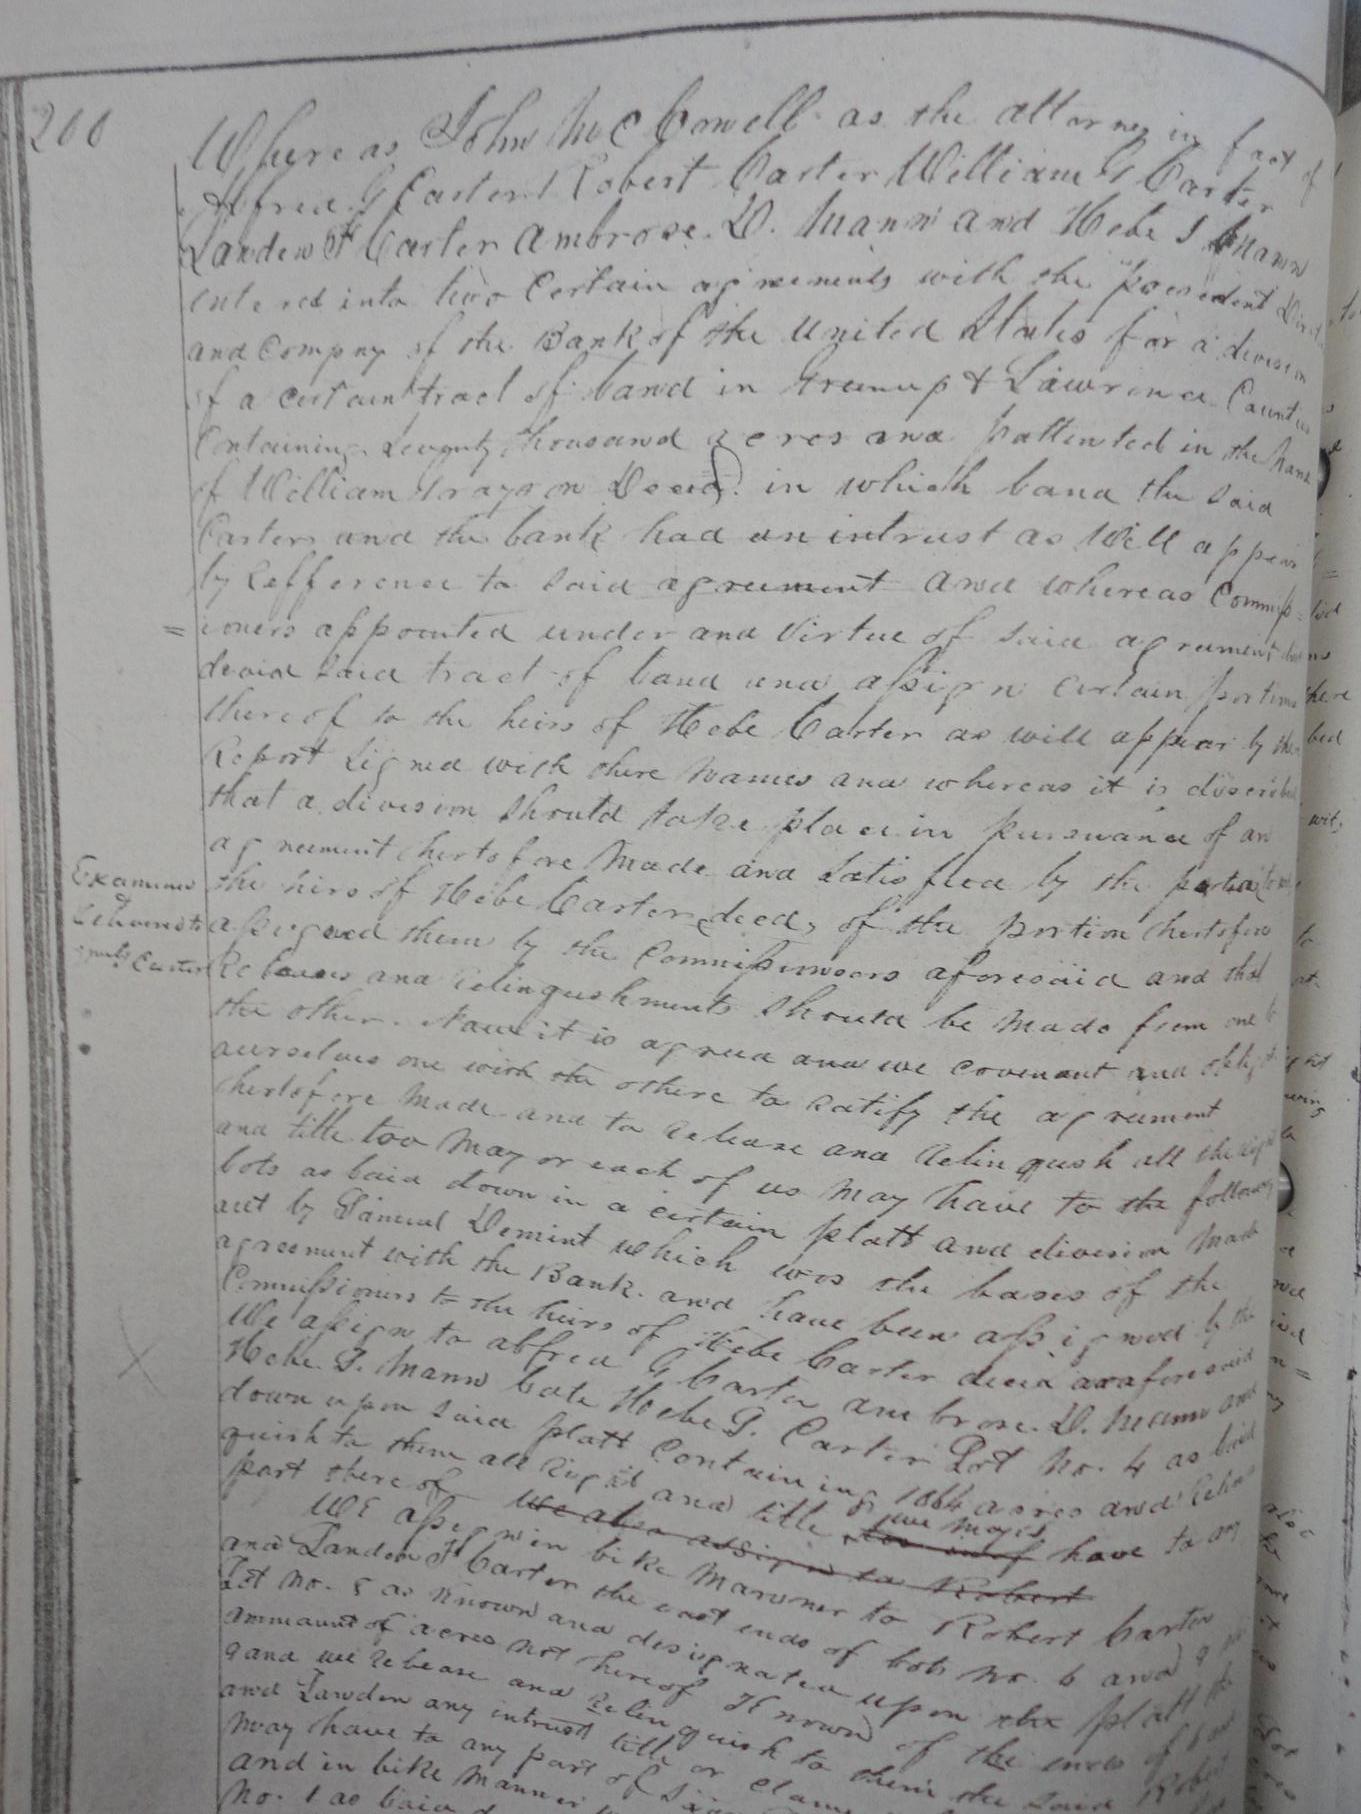 200
Whereas John McConnell as the attorney in fact of
Alfred G Carter Robert Carter William G Carter
Landon H Carter Ambrose. D. Mann and Hebe S Mann
entered into two Certain agreements with the president
and Compny of the Bank of the United States for a devision
of a certain tract of Land in Greenup & Lawrence Counties
Containing Seventy thousand acres and pattented in the Name
of William Grayson Decd. in which Land the said
Carters and the bank had an intrust as Will appear
by Refference to said agreement and whereas Commiss=
=ioners appointed under and Virtue of said agreement
devid said tract of Land and assign certain portions
thereof to the heirs of Hebe Carter as will appear by the
Report Signed with there Names and whereas it is
that a division should take place in pursuance of an
agreement hertofore Made and Satisfied by the
the hirs of Hebe Carter decd, of the portion hertofore
assigned them by the Commissioners aforesaid and that
Releases and Relinquishments should be Made from one to
the other. Now it is agreed and we covenant and oblige
ourselves one with the othere to ratify the agreement
hertofore Made and to Release and Relinquish all the right
and title too May or each of us May have to the following
Lots as Laid down in a certain platt and division Made
out by Samuel Demint which was the bases of the
agreement with the Bank. and have been assigned by the
Commissioners to the heirs of Hebe Carter decd as aforesaid
We assign to Alfred G Carter Ambrose. D. Mann and
Hebe. G. Mann Late Hebe G. Carter Lot No. 4 as Laid
down upon said platt Containing 1864 acres and Relin
quish to them all right and title we may have to any
part thereof We also assign to Robert
We assign in Like Manner to Robert Carter
and Landon H Carter the east ends of Lots No. 6 and
Lot No. 5 as Known and designated upon the platt the
ammaunt of acres not hereof Known of the ends of
and we Release and Relinquish to them the said Robert
and Landon any intrust title or Clame
may have to any part of
and in Like Manner
No. 1 as Laid
Examined
&
Delivered to
Carter